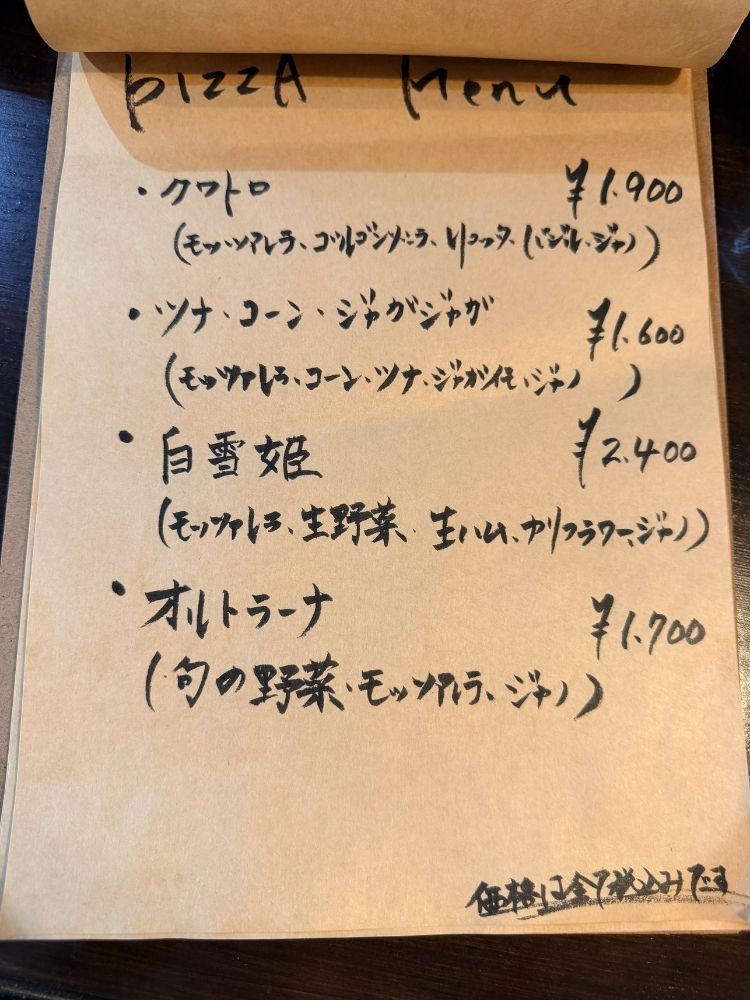 pIZZA Menu
・クワトロ ¥1.900
(モッツァレラ、ゴルゴンゾーラ、リコッタ、バジル、ジャノ)
・ツナ・コーン・ジャガジャガ ¥1.600
(モッツァレラ、コーン、ツナ、ジャガイモ、ジャノ)
・白雪姫 ¥2.400
(モッツァレラ、生野菜、生ハム、カリフラワー、ジャノ)
・オルトラーナ ¥1.700
(旬の野菜、モッツァレラ、ジャノ)
価格は全て税込みです